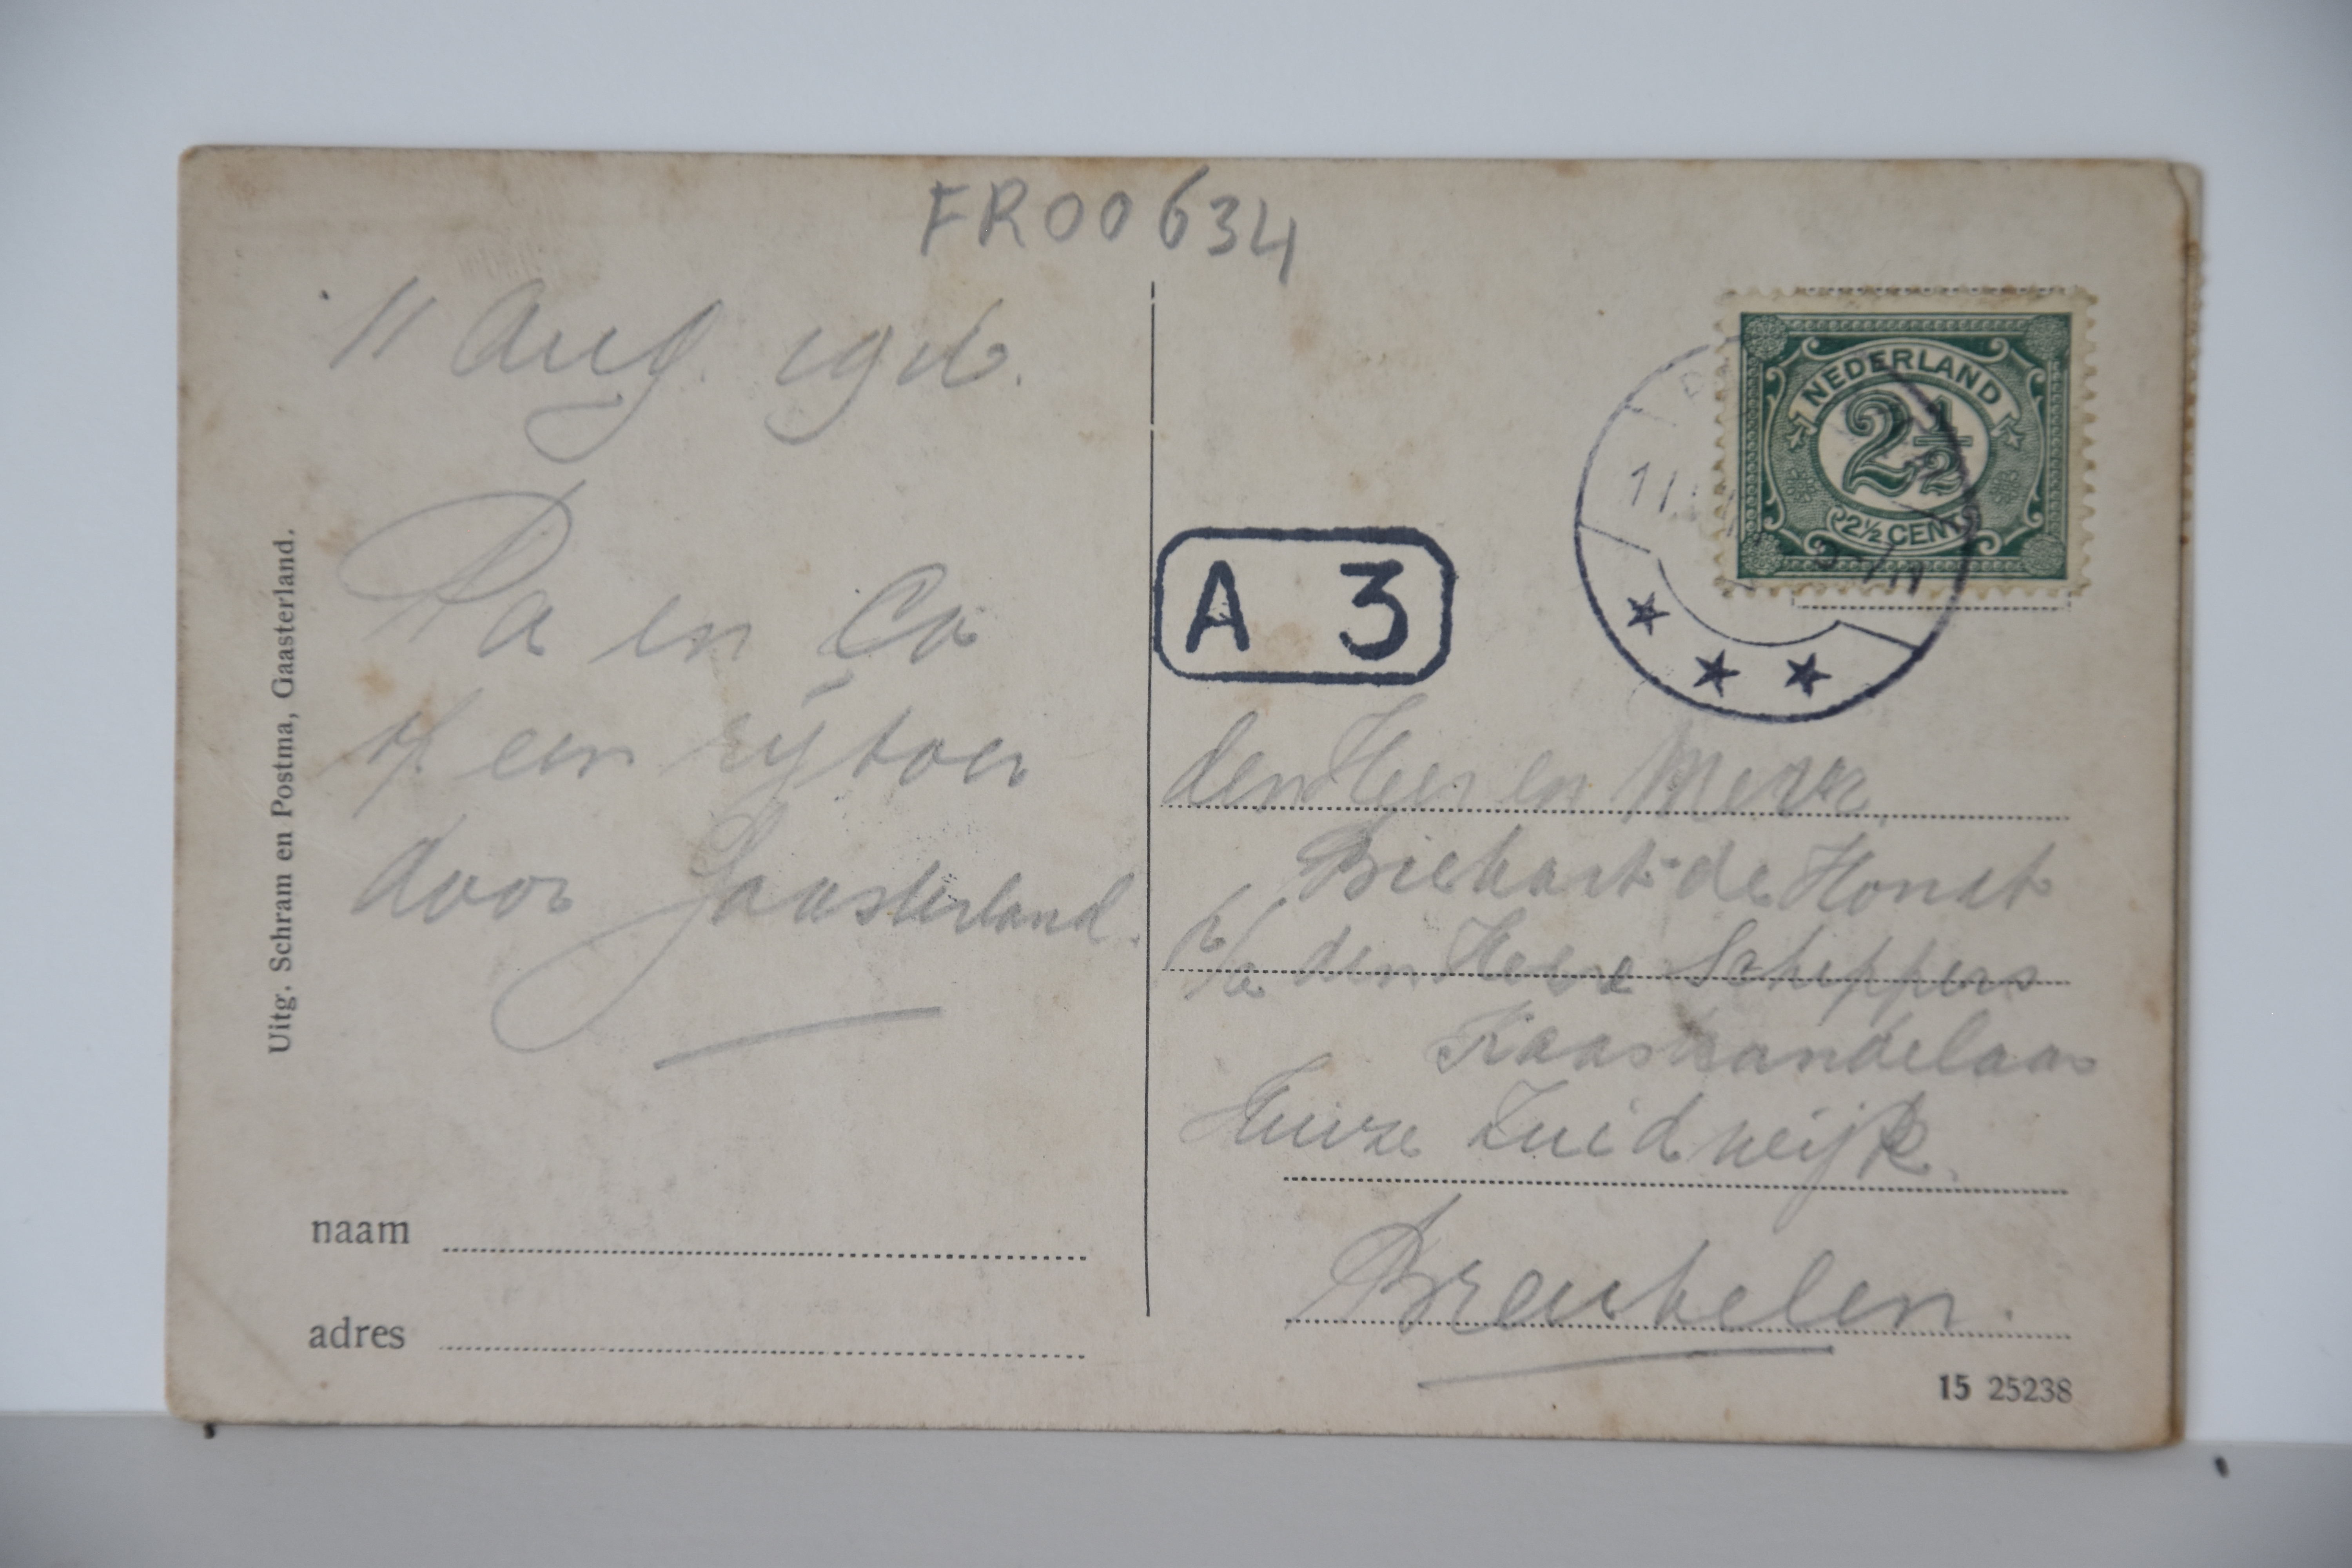 FR00634
11 Aug. 1916.
Pa en Co
op een rijtoer
door Gaasterland.
Uitg. Schram en Postma, Gaasterland.
naam
adres
NEDERLAND
2½
2½ CENT
11
A 3
den Heer en Mevr.
de Hondt
p/a den Heer Scheppers
Kaashandelaar
Huize Zuidwijk.
Breukelen.
15 25238